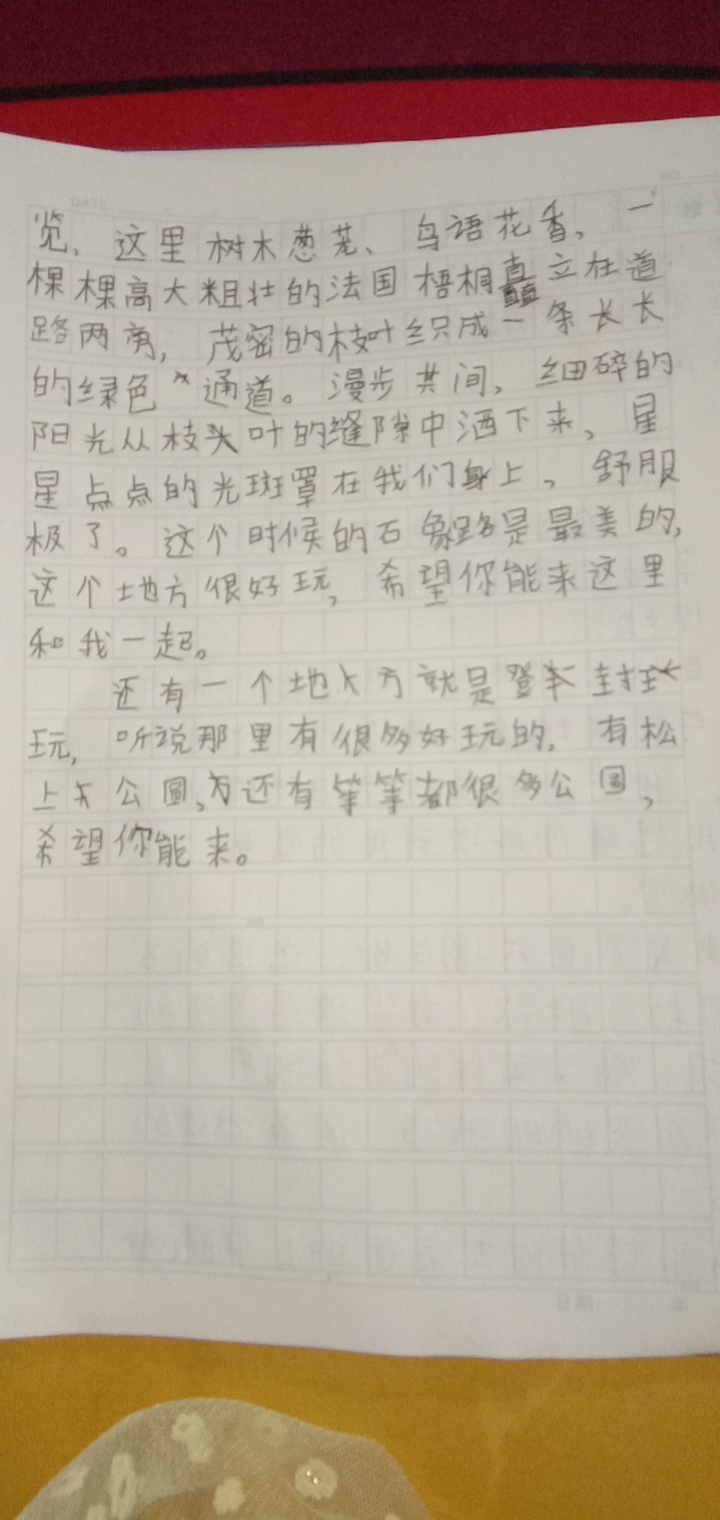 览,这里树木葱茏、鸟语花香,一
棵棵高大粗壮的法国梧桐矗立在道
路两旁,茂密的枝叶织成一条长长
的绿色通道。漫步其间,细碎的
阳光从枝头叶的缝隙中洒下来,星
星点点的光斑罩在我们身上,舒服
极了。这个时候的石象路是最美的,
这个地方很好玩,希望你能来这里
和我一起。
还有一个地方就是登封
玩,听说那里有很多好玩的,有松
上公圆,还有等等都很多公圆,
希望你能来。